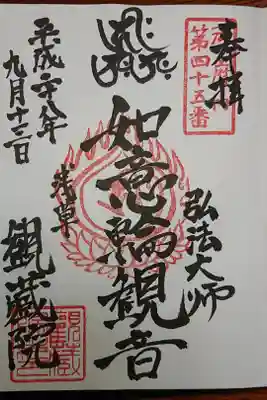 奉拝
第四十五番
弘法大師
如意輪観音
浅草
観蔵院
平成二十八年
九月十三日